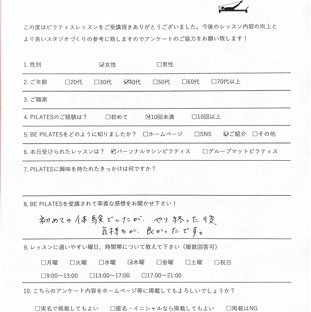 この度はピラティスレッスンをご受講頂きありがとうございました。今後のレッスン内容の向上と
より良いスタジオづくりの参考に致しますのでアンケートのご協力をお願い致します！
1. 性別 ☑女性 □男性
2. ご年齢 □20代 □30代 ☑40代 □50代 □60代 □70代以上
3. ご職業
4. PILATESのご経験は？ □初めて ☑10回未満 □10回以上
5. BE PILATESをどのように知りましたか？ □ホームページ □SNS ☑ご紹介 □その他
6. 本日受けられたレッスンは？ ☑パーソナルマシンピラティス □グループマットピラティス
7. PILATESに興味を持たれたきっかけは何ですか？
8. BE PILATESを受講されて率直な感想をお聞かせ下さい！
初めての体験でしたが、やり終った後、
気持ちが良かったです。
9. レッスンに通いやすい曜日、時間帯について教えて下さい（複数回答可）
□月曜 □火曜 □水曜 ☑木曜 □金曜 □土曜 □祝日
□9:00〜13:00 □13:00〜17:00 □17:00〜21:00
10. こちらのアンケート内容をホームページ等に掲載してもよろしいでしょうか？
□実名で掲載してもよい □匿名・イニシャルなら掲載してもよい □掲載はNG